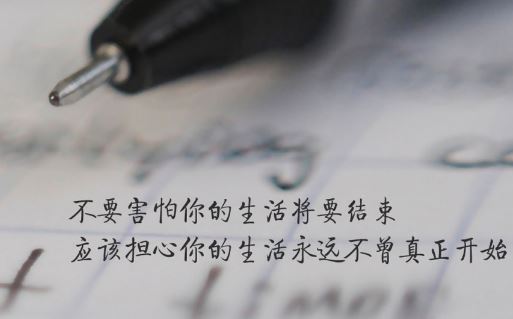 不要害怕你的生活将要结束
应该担心你的生活永远不曾真正开始